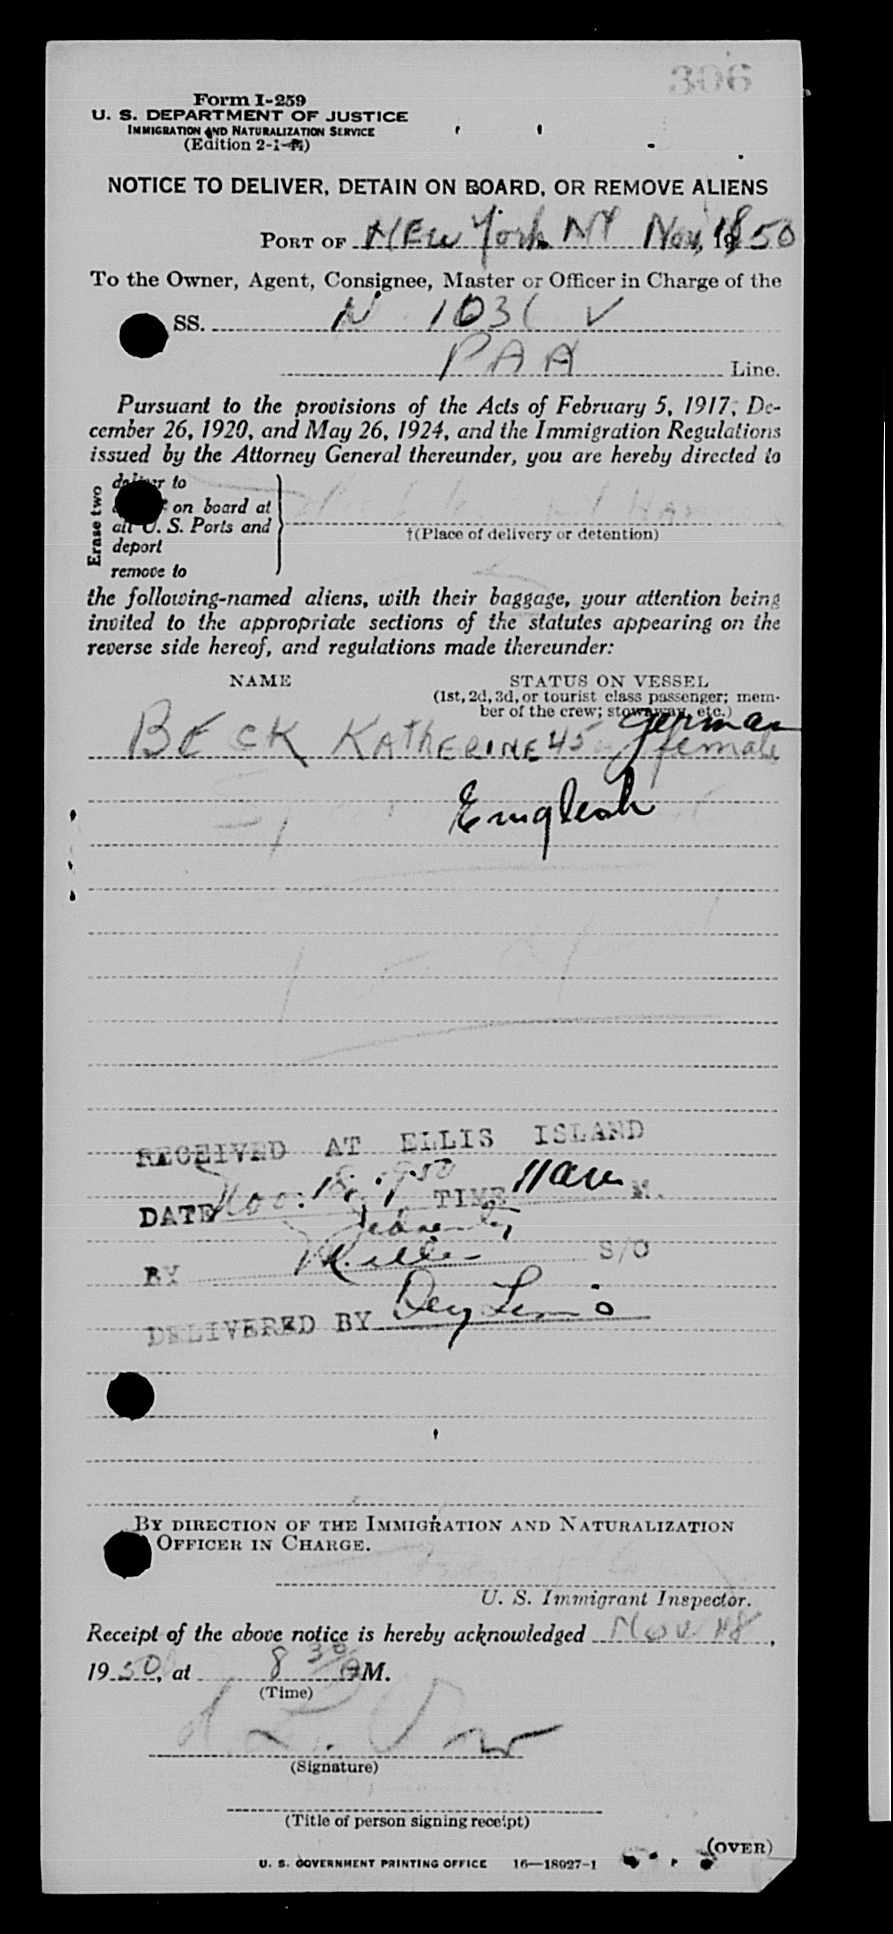 306
Form I-259
U. S. DEPARTMENT OF JUSTICE
IMMIGRATION AND NATURALIZATION SERVICE
(Edition 2-1-)
NOTICE TO DELIVER, DETAIN ON BOARD, OR REMOVE ALIENS
PORT OF NEW York NY Nov, 18 1950
To the Owner, Agent, Consignee, Master or Officer in Charge of the
SS. N 1036 V
PAA Line.
Pursuant to the provisions of the Acts of February 5, 1917, De-
cember 26, 1920, and May 26, 1924, and the Immigration Regulations
issued by the Attorney General thereunder, you are hereby directed to
Erase two
deliver to
on board at
all U. S. Ports and
deport
remove to
†(Place of delivery or detention)
the following-named aliens, with their baggage, your attention being
invited to the appropriate sections of the statutes appearing on the
reverse side hereof, and regulations made thereunder:
NAME STATUS ON VESSEL
(1st, 2d, 3d, or tourist class passenger; mem-
ber of the crew; stowaway, etc.)
BECK KAThERINE 45 german female
English
RECEIVED AT ELLIS ISLAND
DATE Nov. 18, 1950 TIME 11 am M.
BY Miller S/O
DELIVERED BY
BY DIRECTION OF THE IMMIGRATION AND NATURALIZATION
OFFICER IN CHARGE.
U. S. Immigrant Inspector.
Receipt of the above notice is hereby acknowledged Nov 18,
1950, at 8 30 AM.
(Time)
(Signature)
(Title of person signing receipt)
(OVER)
U. S. GOVERNMENT PRINTING OFFICE 16—18027-1